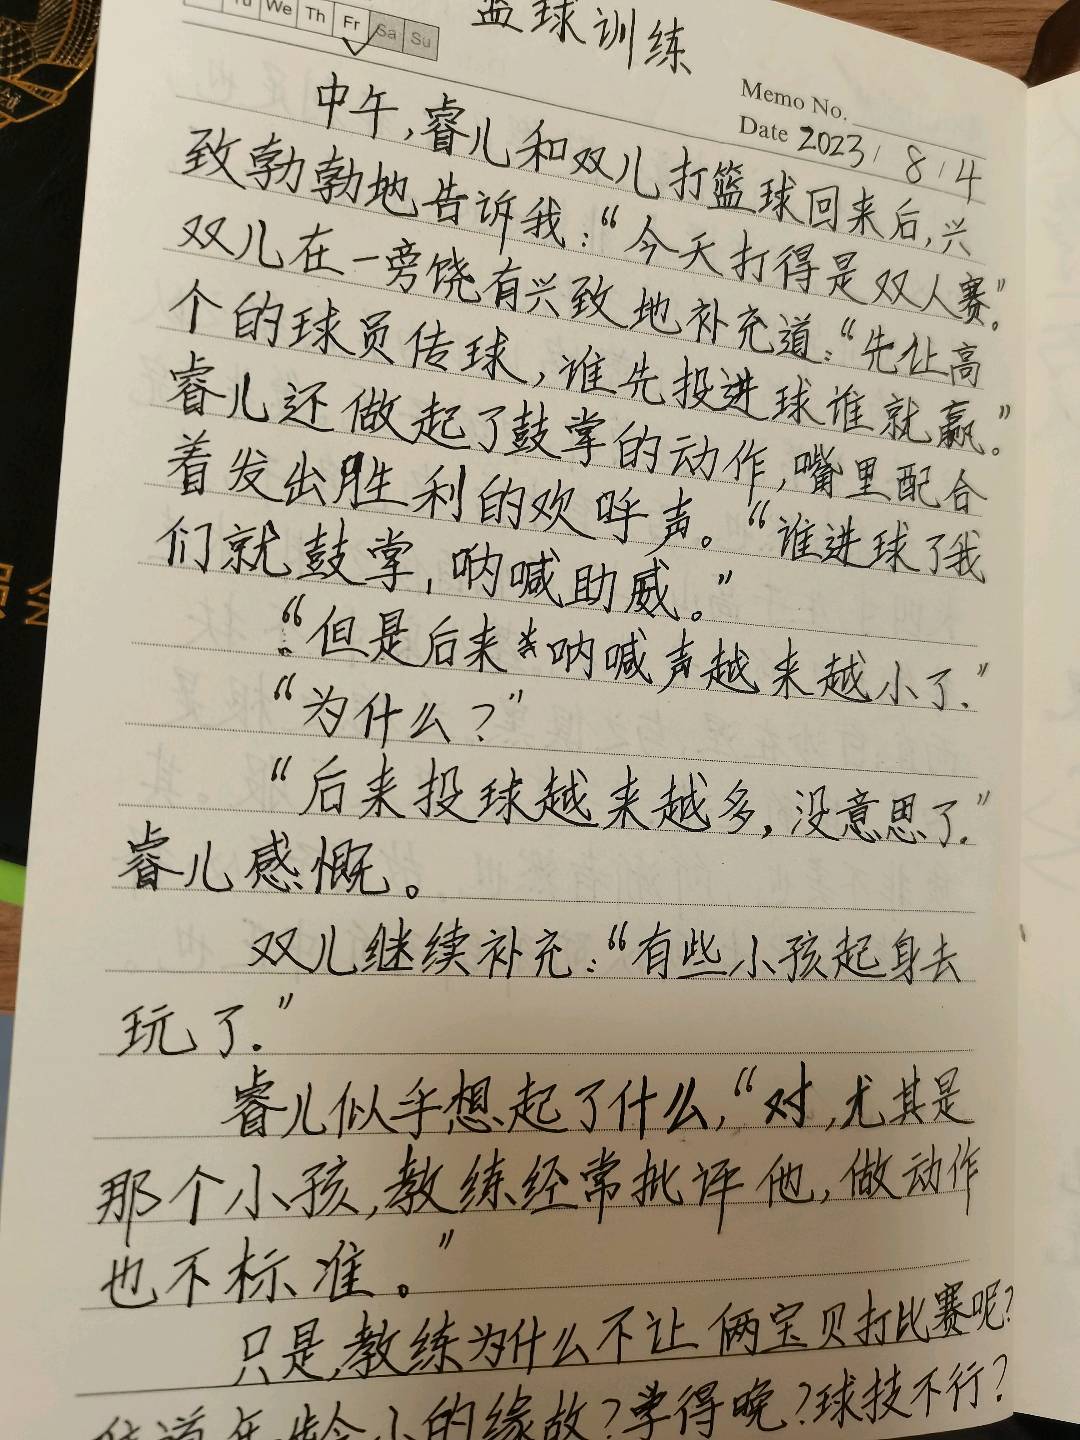 We Th Fr Sa Su
篮球训练
Memo No.
Date 2023/8/4
中午,睿儿和双儿打篮球回来后,兴
致勃勃地告诉我:“今天打得是双人赛。”
双儿在一旁饶有兴致地补充道:“先让高
个的球员传球,谁先投进球谁就赢。”
睿儿还做起了鼓掌的动作,嘴里配合
着发出胜利的欢呼声。“谁进球了我
们就鼓掌,呐喊助威。”
“但是后来呐喊声越来越小了.”
“为什么?”
“后来投球越来越多,没意思了.”
睿儿感慨。
双儿继续补充:“有些小孩起身去
玩了.”
睿儿似乎想起了什么,“对,尤其是
那个小孩,教练经常批评他,做动作
也不标准。”
只是,教练为什么不让俩宝贝打比赛呢?
年龄小的缘故?学得晚?球技不行?